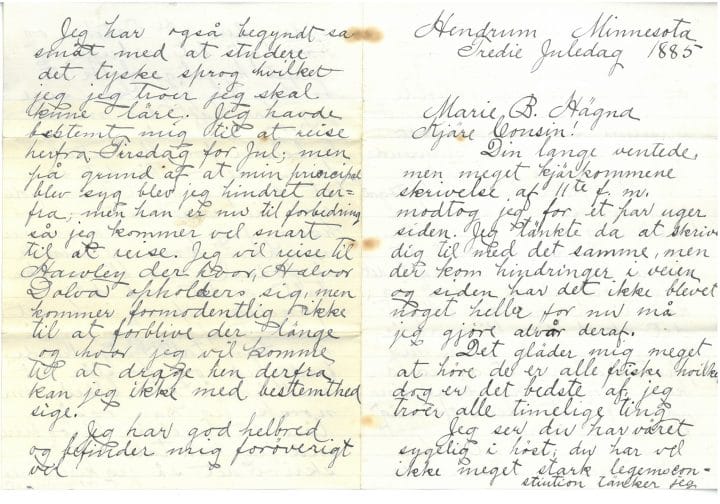 Jeg har også begyndt så
småt med at studere
det tyske sprog hvilket
jeg jeg troer jeg skal
kune läre. Jeg havde
bestemt mig til at reise
herfra Tirsdag for Jul, men
på grund af at min principal
blev syg blev jeg hindret der-
fra, men han er nu til forbedning
så jeg kommer vel snart
til at reise. Jeg vil reise til
Hawley der hvor, Halvor
Dolva opholders sig, men
kommer formodentlig ikke
til at forblive der länge
og hvor jeg vil komme
til at drage hen derfra
kan jeg ikke med bestemthed
sige.
Jeg har god helbred
og befinder mig foröverigt
vel
Hendrum Minnesota
Tredie Juledag 1885
Marie B. Hägna
Kjäre Cousin!
Din lange ventede,
men meget kjärkommene
skrivelse af 11te f. m.
modtog jeg, for et par uger
siden. Jeg tänkte da at skrive
dig til med det samme, men
der kom hindringer i veien
og siden har det ikke blevet
noget heller for nu må
jeg gjöre alvår deraf.
Det gläder mig meget
at höre de er alle friske hvilke
dog er det bedste af, jeg
troer alle timelige ting
Jeg ser du har väret
sygelig i höst; du har vel
ikke meget stark legemscon-
stiution tänker jeg